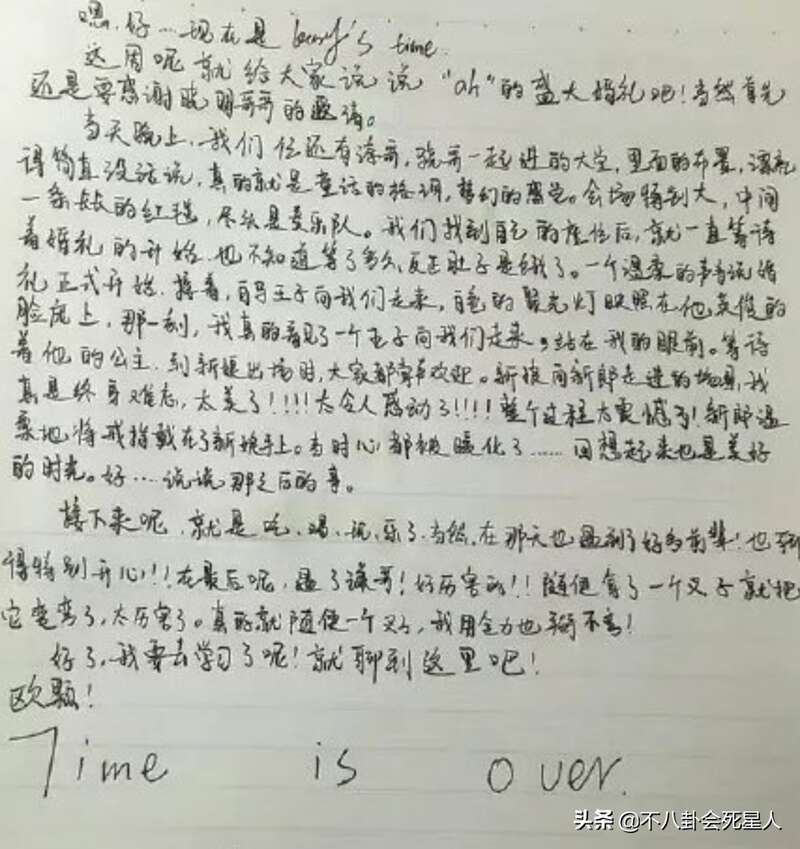 嗯,好…现在是 karry's time.
这周呢就给大家说说"ah"的盛大婚礼吧!当然首先
还是要感谢晓明哥哥的邀请。
当天晚上,我们仨还有涛哥,骁哥一起进的大堂,里面的布置,漂亮
得简直没话说,真的就是童话的格调,梦幻的感觉。会场特别大,中间
一条长长的红毯,尽头是交乐队。我们找到自己的座位后,就一直等待
着婚礼的开始.也不知道等了多久,反正肚子是饿了。一个温柔的声音说婚
礼正式开始.接着,白马王子向我们走来,白色的聚光灯映照在他英俊的
脸庞上,那一刻,我真的看见了一个王子向我们走来,站在我的眼前。等待
着他的公主.到新娘出场时,大家都掌声欢迎。新娘向新郎走进的场景,我
真是终身难忘,太美了!!!!太令人感动了!!!!整个过程太震憾了!新郎温
柔地将戒指戴在了新娘手上。当时心都被暖化了……回想起来也是美好
的时光。好….说说那之后的事。
接下来呢,就是吃、喝、玩、乐了.当然,在那天也遇到了好多前辈!也聊
得特别开心!!在最后呢,逗了谦哥!好厉害的!!随便拿了一个叉子就把
它变弯了,太厉害了。真的就随便一个叉子,我用全力也掰不弯!
好了,我要去学习了呢!就聊到这里吧!
欧颗!
Time is over.
头条 @不八卦会死星人